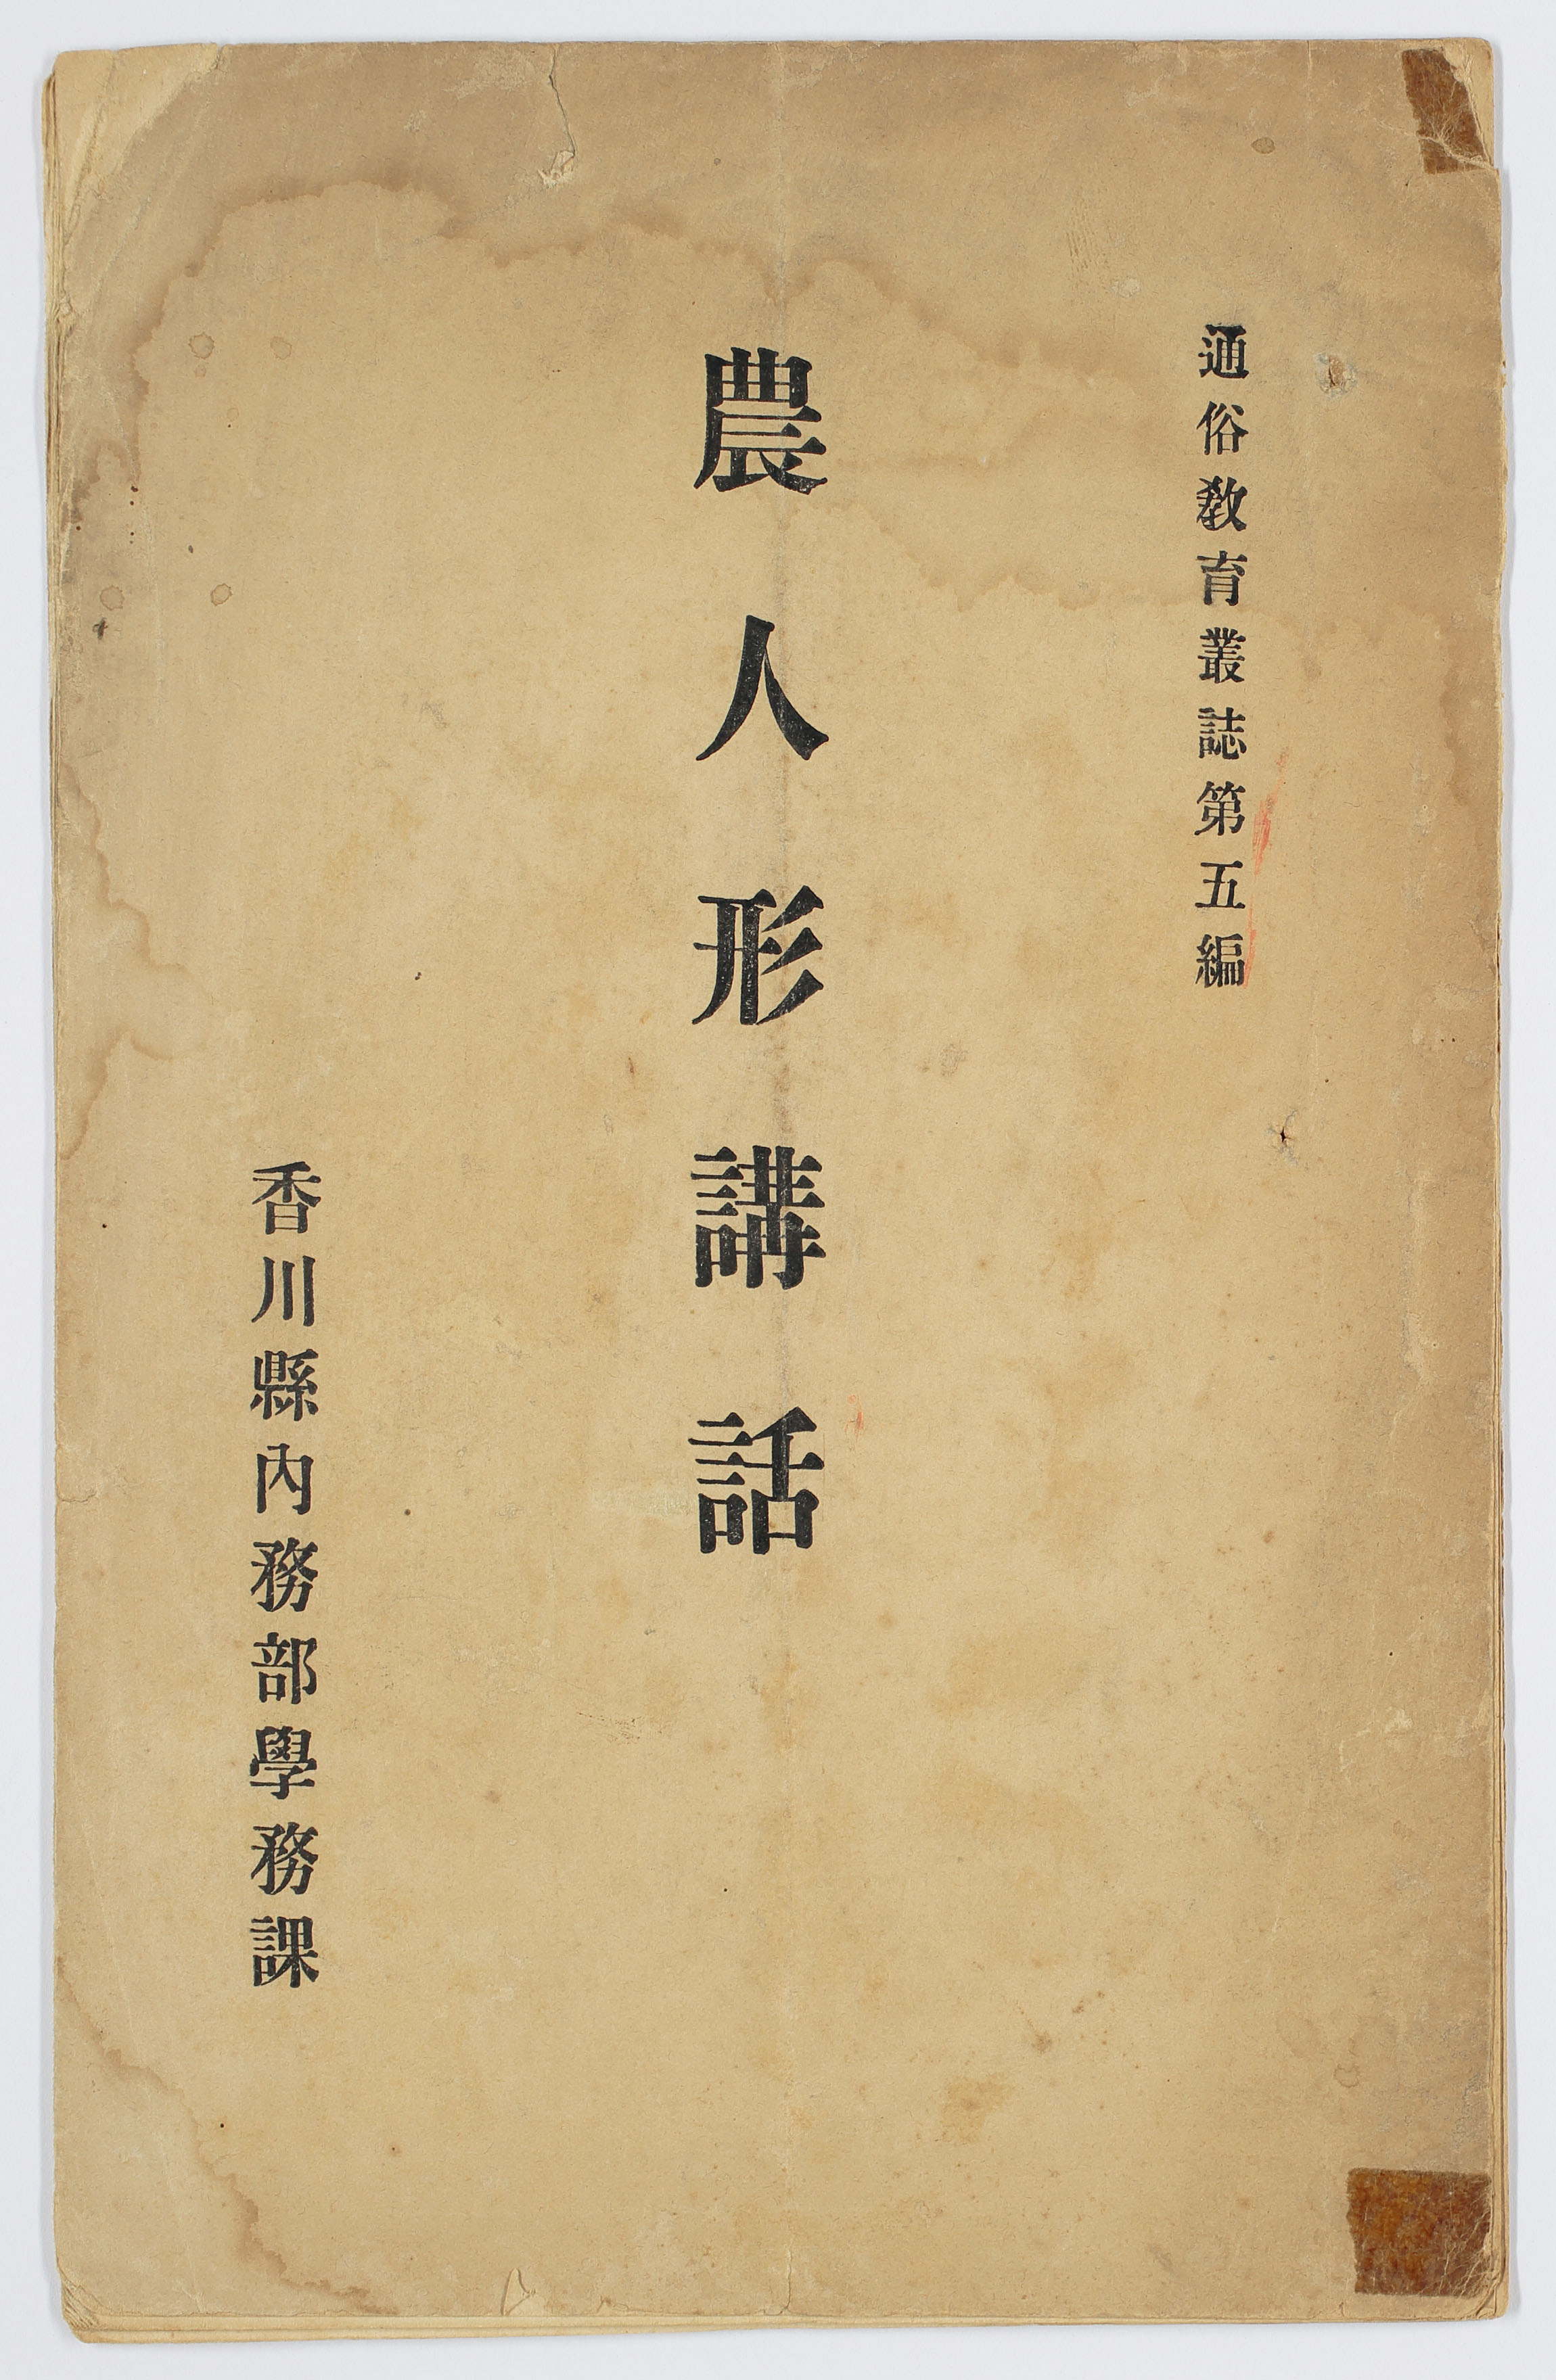 通俗敎育叢誌第五編
農人形講話
香川縣內務部學務課